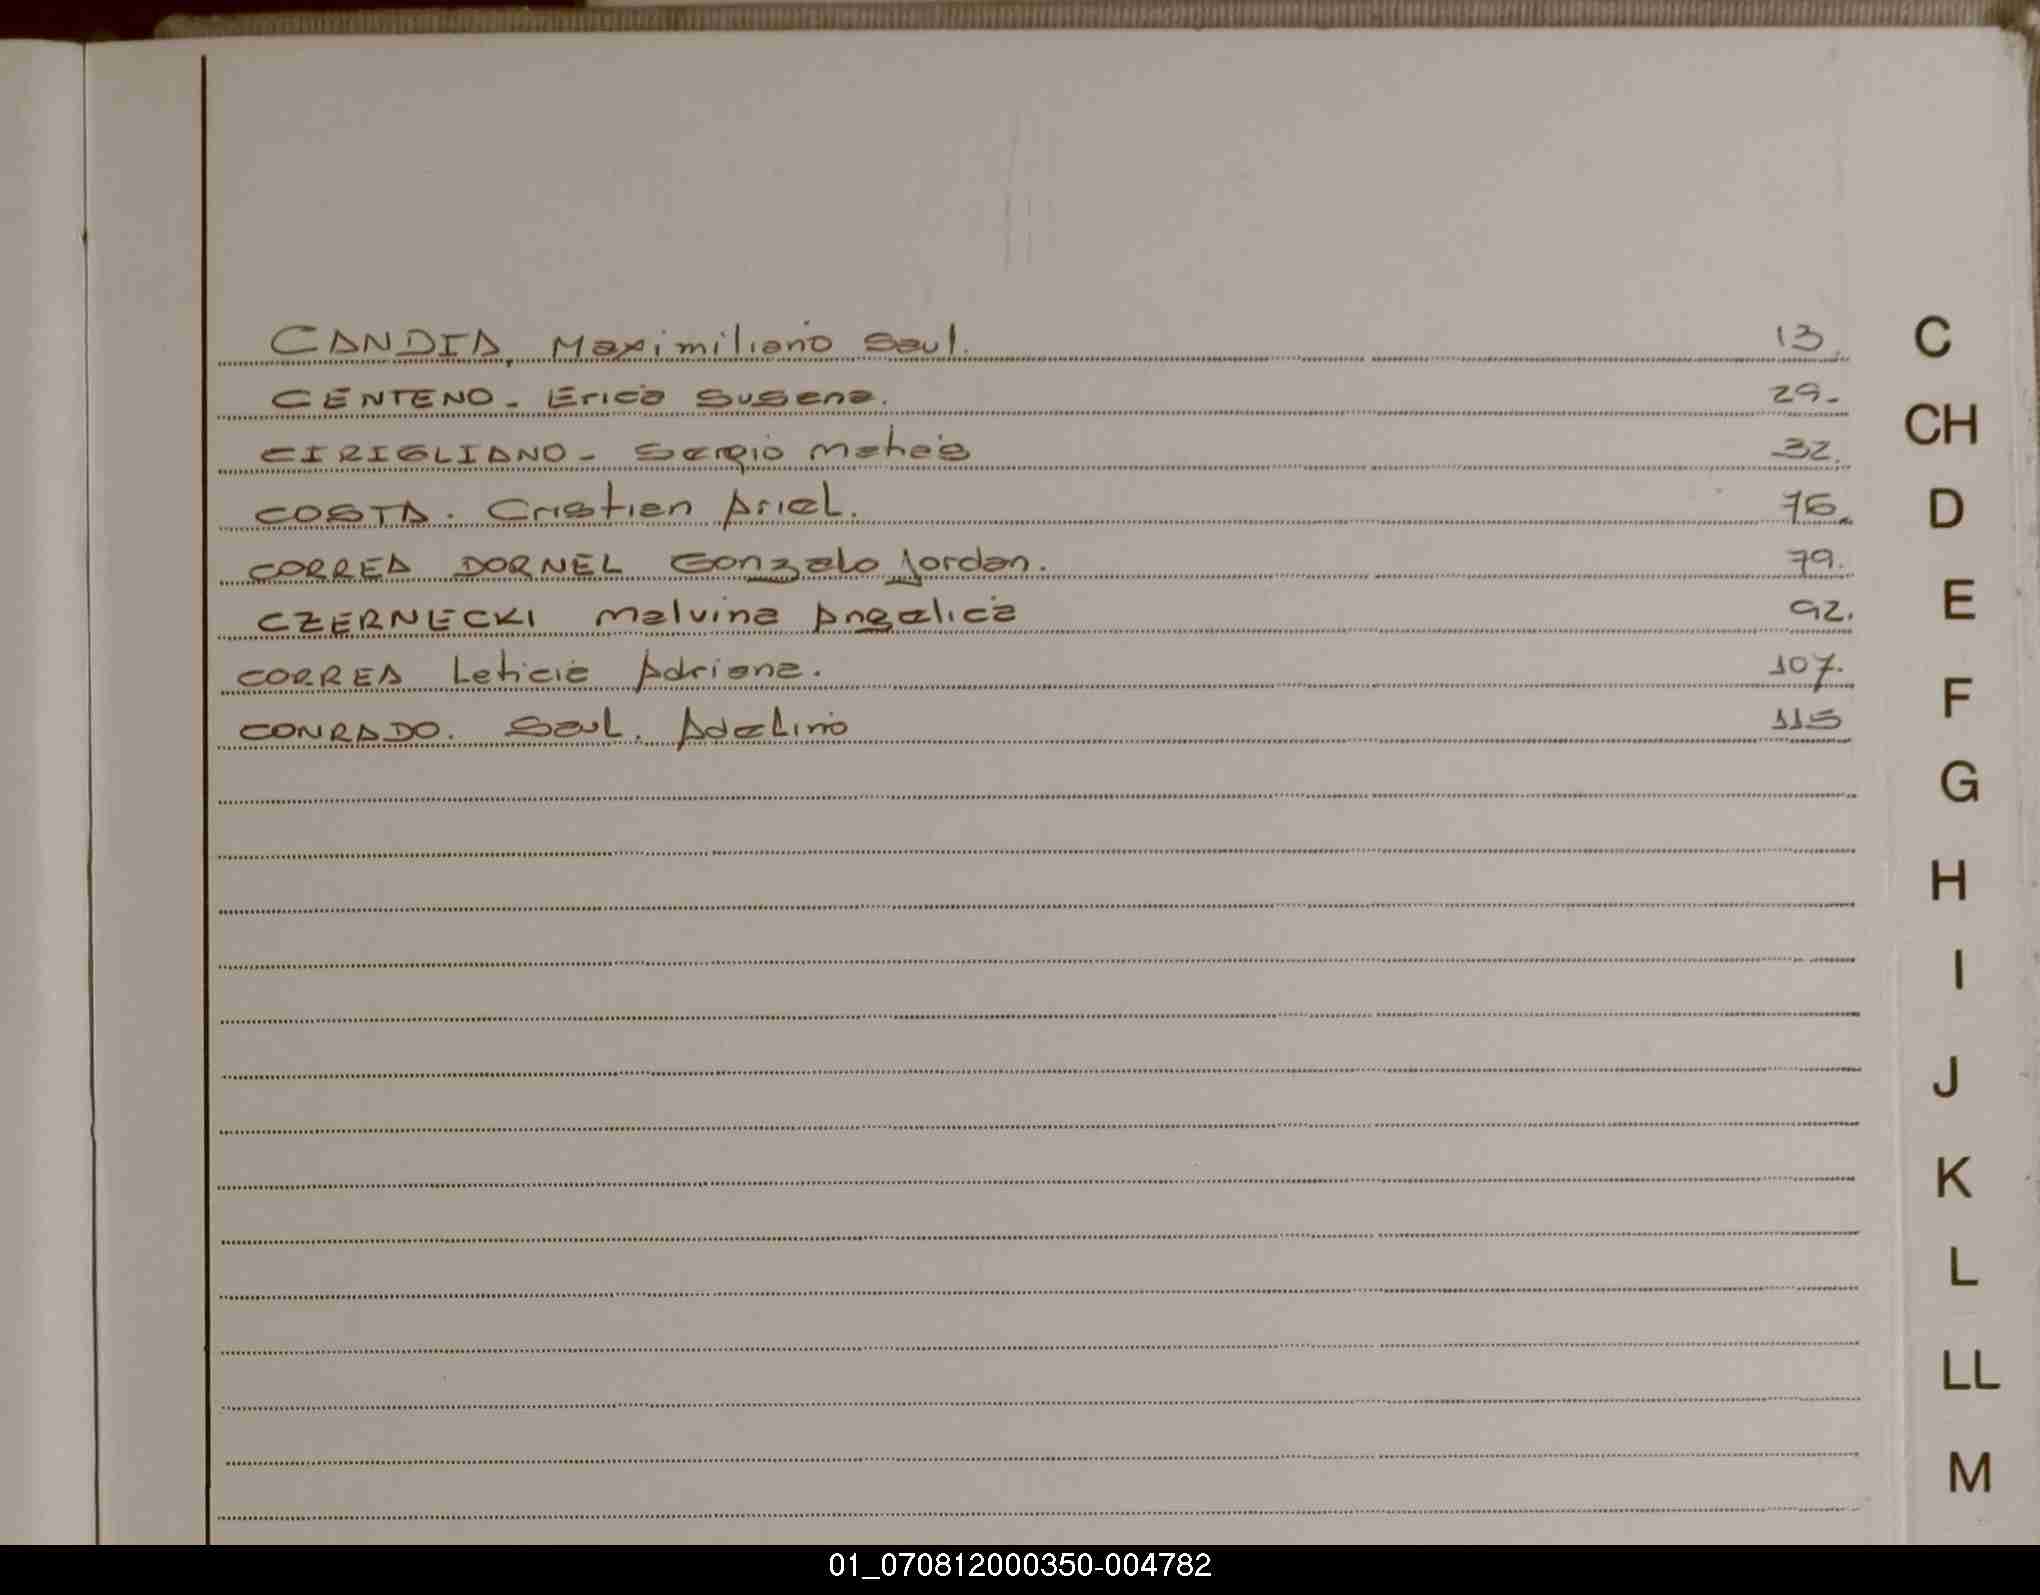 CANDIA, Maximiliano Saul. 13.
C
CENTENO - Erica Susana. 29.-
CH
CIRIGLIANO - Sergio Matias 32.
COSTA. Cristian Ariel. 76.
D
CORREA DORNEL Gonzalo Jordan. 79.
E
CZERNECKI Malvina Angelica 92.
CORREA Leticia Adriana. 107.
F
CONRADO. Saul. Adelino 115
G
H
I
J
K
L
LL
M
01_070812000350-004782